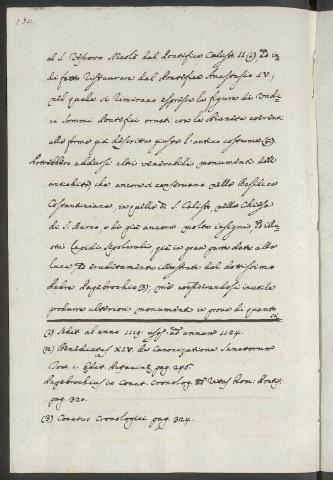 134.
al S. Vescovo Nicolò dal Pontefice Calisto II (1) Ed in-
di fatto ristaurare dal Pontefice Anastasio IV,
nel quale si rimirano espresse le figure di undi-
ci Sommi Pontefici ornati con le Pianete coerenti
alla forma già descritta giusta l'antico costume (2)
Potrebbero addursi altri venerabili monumenti dell'
antichità, che ancora si conservano nella Basilica
Costantiniana, in quella di S. Calisto, nella Chiesa
di S. Marco, e di più ancora molte insigni, ed illu-
stri Lapidi Sepolcrali, già in gran parte date alla
luce, ed eruditamente illustrate dal dottissimo
Padre Papebrochio (3), mà considerandosi inutile
produrre ulteriori monumenti in prova di quanto
si
(1) Sedit ab anno 1119. usq; ad annum 1124.
(2) Benedictus XIV. de Canonizatione Sanctorum
Tom. 1. Edit. Patavinæ pag. 246.
Papebrochius in Conat. Cronolog. ad Vitas Rom: Pontif.
pag. 320.
(3) Conatus Cronologici pag. 324.